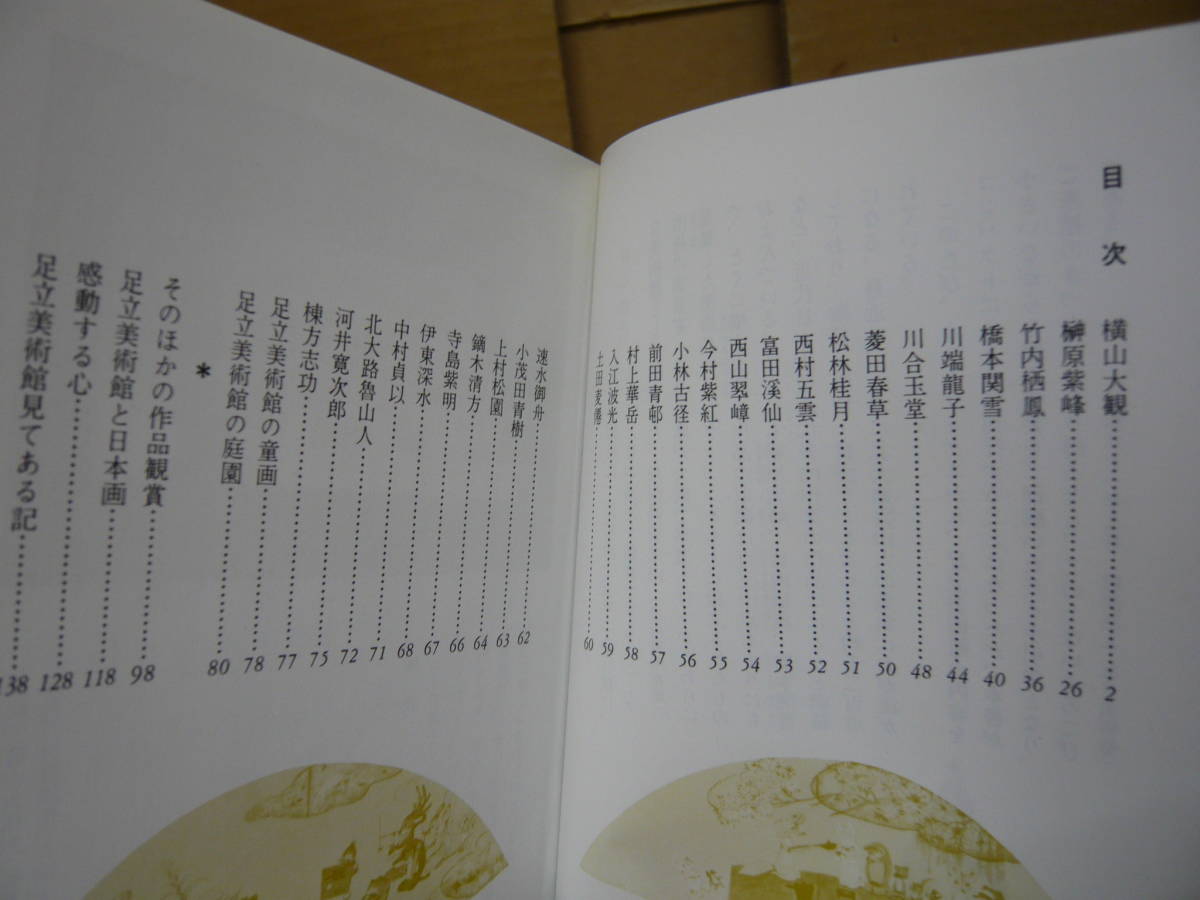 目次
横山大観……2
榊原紫峰……26
竹内栖鳳……36
橋本関雪……40
川端龍子……44
川合玉堂……48
菱田春草……50
松林桂月……51
西村五雲……52
富田溪仙……53
西山翠嶂……54
今村紫紅……55
小林古径……56
前田青邨……57
村上華岳……58
入江波光……59
土田麦僊……60
速水御舟……62
小茂田青樹……63
上村松園……64
鏑木清方……66
寺島紫明……67
伊東深水……68
中村貞以……71
北大路魯山人……72
河井寛次郎……75
棟方志功……77
足立美術館の童画……78
足立美術館の庭園……80
*
そのほかの作品観賞……98
足立美術館と日本画……118
感動する心……128
足立美術館見てある記……138